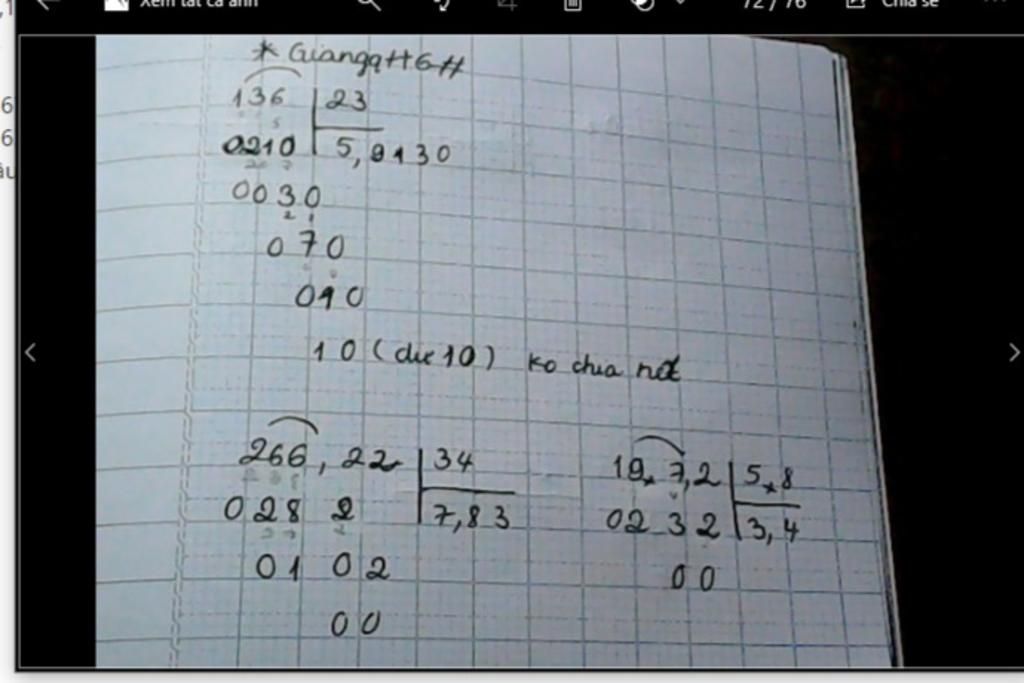 Xem tất cả ảnh
72 / 76
Chia sẻ
* Giangqtt6#
136 | 23
0210 | 5,9130
0030
070
010
10 (dư 10) ko chia hết
266,22 | 34
028 2 | 7,83
01 02
00
19,7,2 | 5,8
0232 | 3,4
00